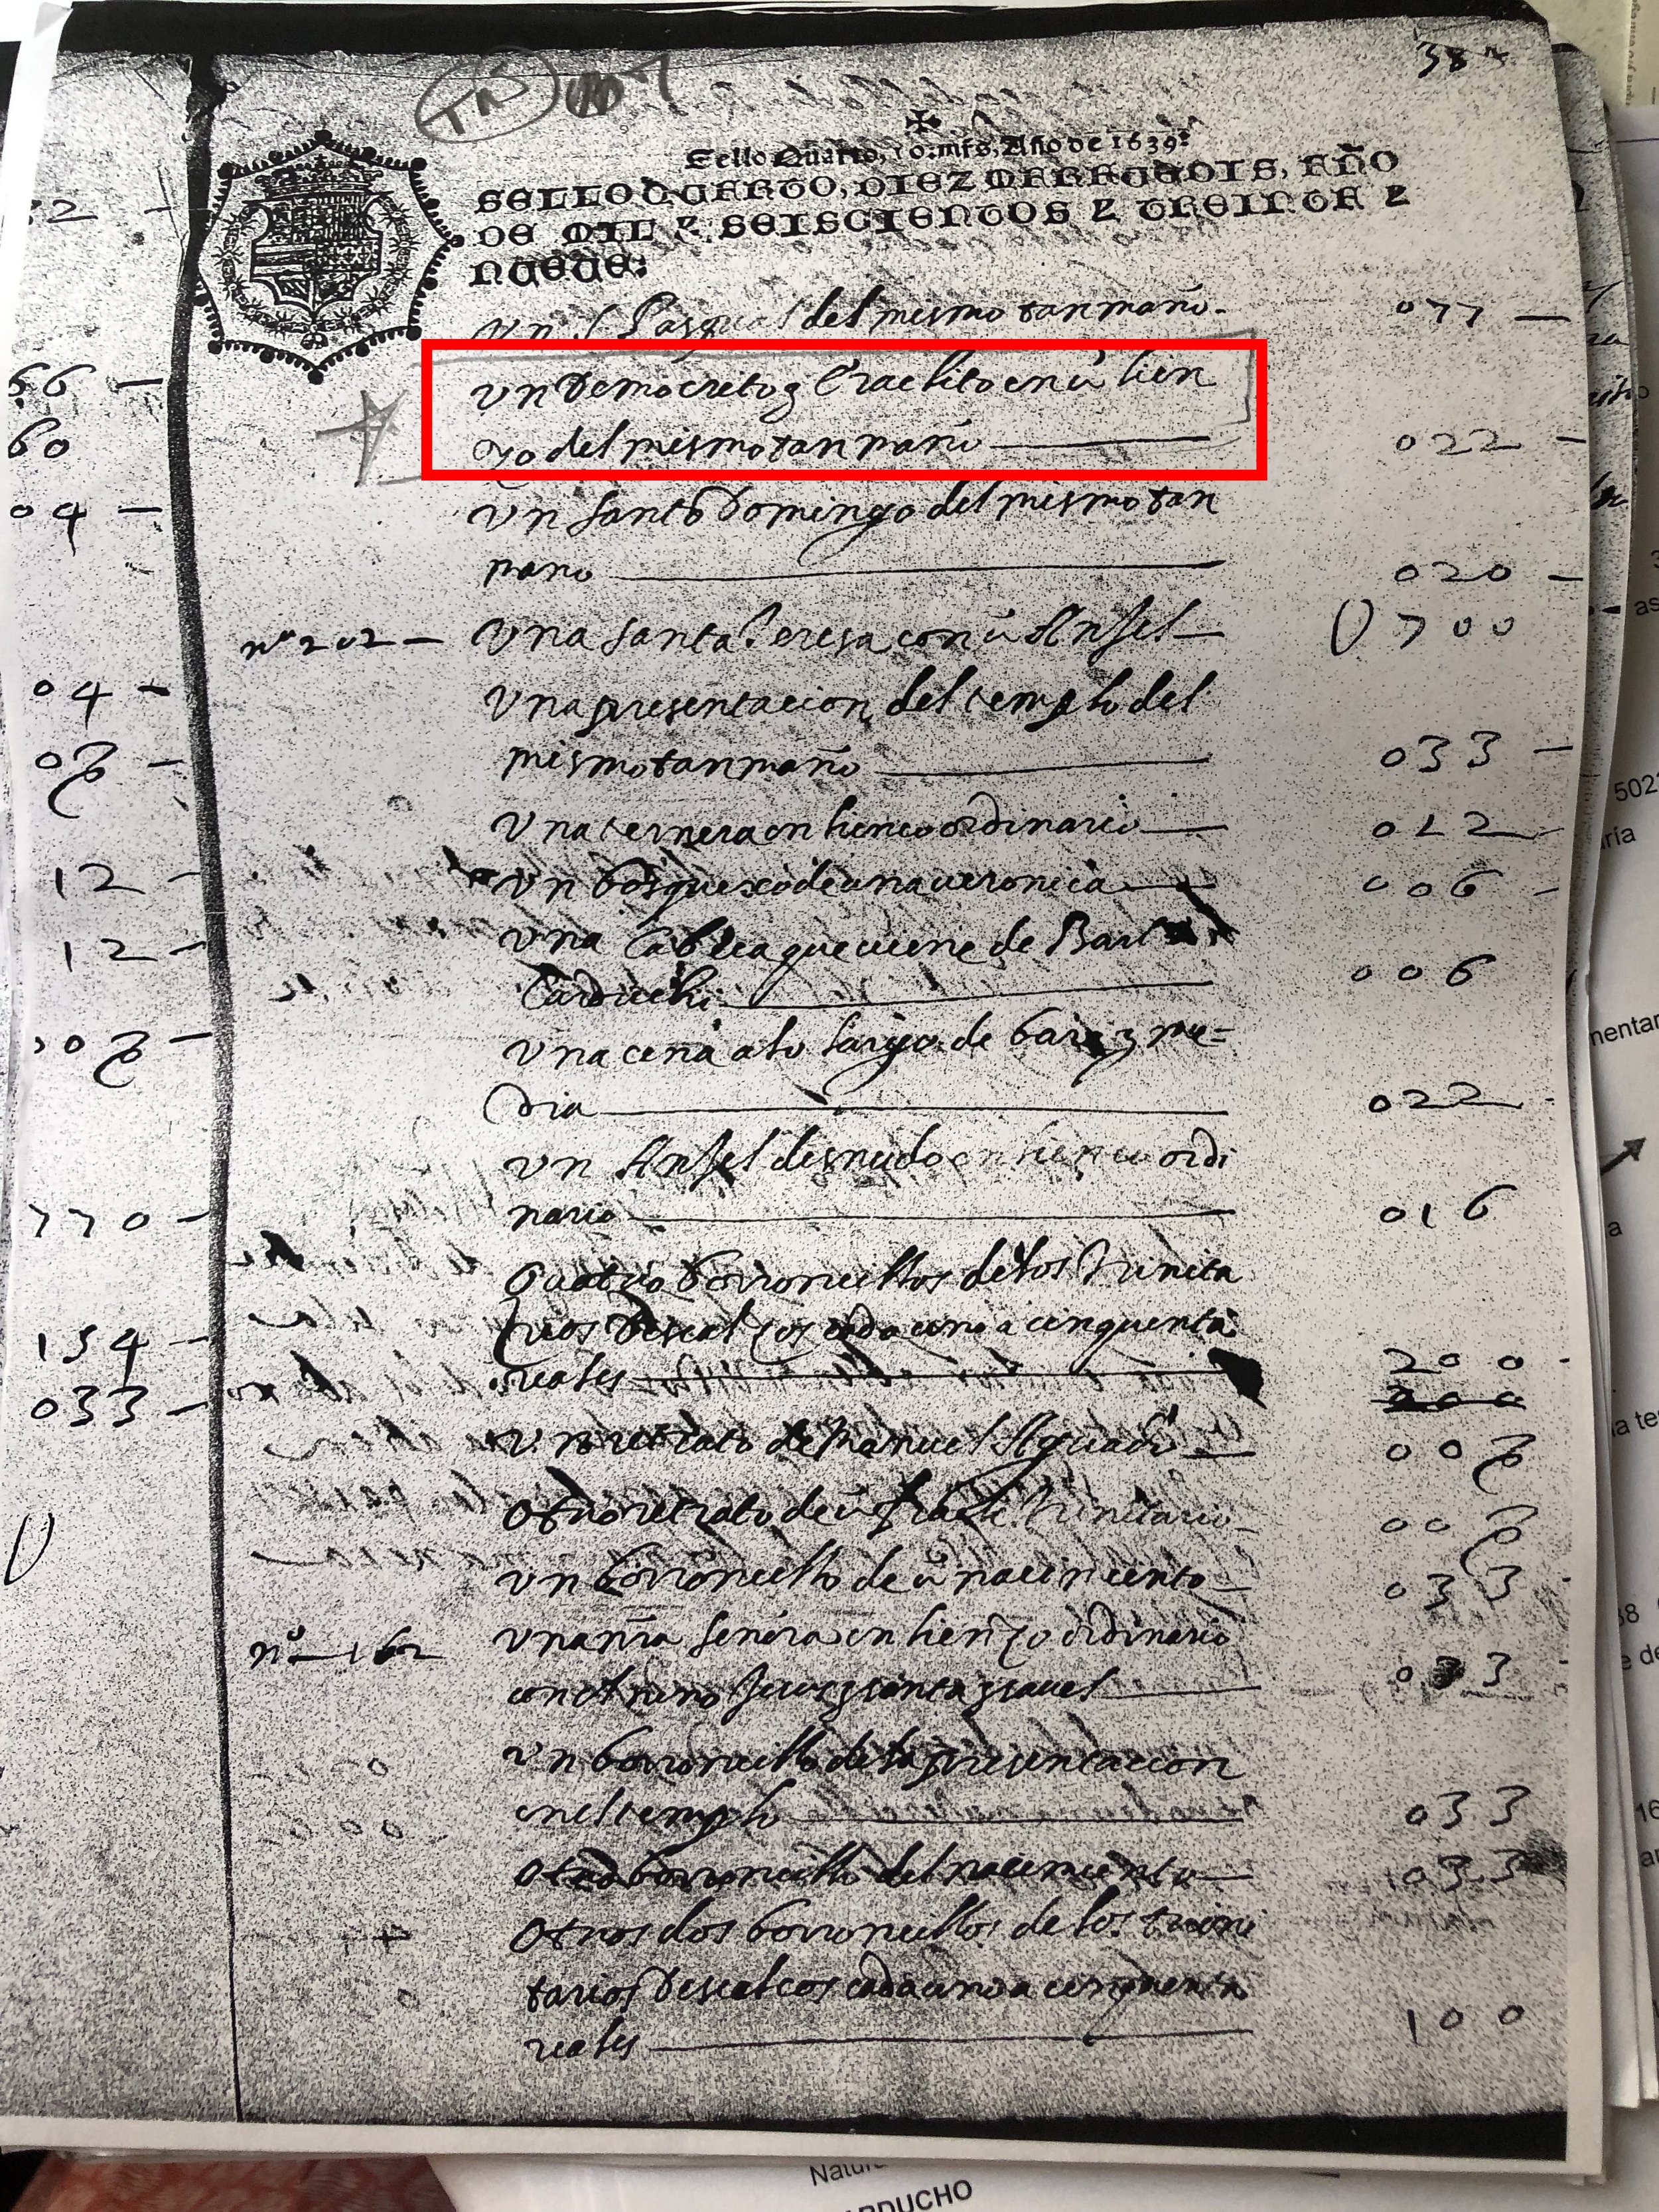 38
TNS
Sello Quarto, 10. mrs, Año de 1639
SELLO QUARTO, DIEZ MARAVEDIS, AÑO
DE MIL Y SEISCIENTOS Y TREINTA Y
NUEVE:
Un S Pasqual del mismo tanmaño. 077
Un Democrito y Eraclito en ũ lien
66
ço del mismo tanmaño 022
60
Un Santo Domingo del mismo tan
04
maño 020
nº 202 Una Santa Teresa con ũ Anjel 700
Una presentacion del templo del
04
mismo tanmaño 033
Una ternera en lienço ordinario 012
12 Un bosquexo de una veronica 006
12 Una Cabeça que viene de Bart
Carduchi 006
Una cena a lo largo de bara y me
dia 022
Un Anjel desnudo en lienço ordi
770 nario 016
Quatro borroncillos de los Trinita
rios Descalços cada uno a cinquenta
154
reales 200
200
033
Un retrato de Manuel Aguado 00
Otro retrato de ũ fraile Trinitario 00
Un borroncillo de ũ nacimiento 033
nº 162 Una nra Señora en lienço ordinario
con el nino Jesus y santa ysavel 033
Un borroncillo de la presentacion
en el templo 033
Otro borroncillo del nacimiento 033
Otros dos borroncillos de los trini
tarios Descalços cada uno a cinquenta
reales 100
5022
ría
mentar
a
la te
68
e de
16
Natur
RDUCHO